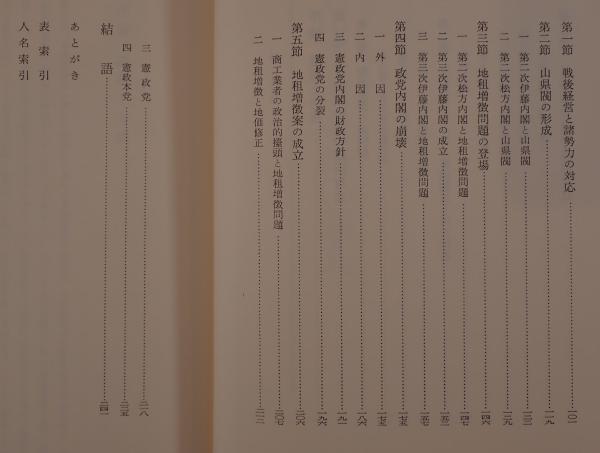 第一節 戦後経営と諸勢力の対応……一〇一
第二節 山県閥の形成……一一九
一 第二次伊藤内閣と山県閥……
二 第二次松方内閣と山県閥……一三九
第三節 地租増徴問題の登場……一四六
一 第二次松方内閣と地租増徴問題……一四七
二 第三次伊藤内閣の成立……
三 第三次伊藤内閣と地租増徴問題……
第四節 政党内閣の崩壊……一七五
一 外因……一七五
二 内因……一八六
三 憲政党内閣の財政方針……一九一
四 憲政党の分裂……一九六
第五節 地租増徴案の成立……二〇六
一 商工業者の政治的擡頭と地租増徴問題……二〇七
二 地租増徴と地価修正……
三 憲政党……二一八
四 憲政本党……
結語……二四一
あとがき
表索引
人名索引